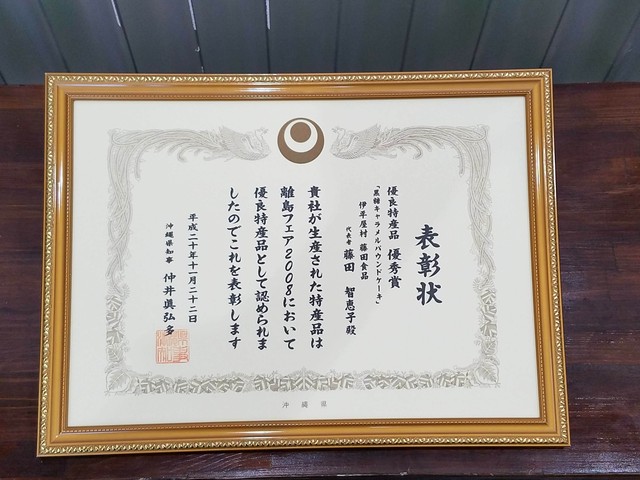 表彰状
優良特産品 優秀賞
「黒糖キャラメルパウンドケーキ」
伊平屋村 藤田食品
代表者 藤田 智恵子殿
貴社が生産された特産品は
離島フェア2008において
優良特産品として認められま
したのでこれを表彰します
平成二十年十一月二十二日
沖縄県知事 仲井眞弘多
沖縄県